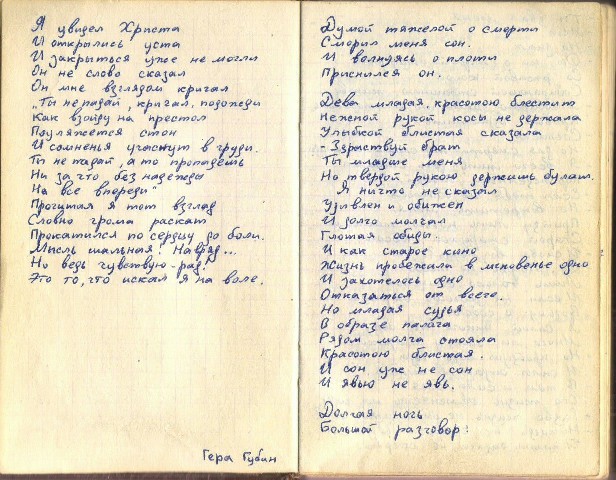 Я увидел Христа
И открылись уста
И закрыться уже не могли
Он не слово сказал
Он мне взглядом кричал
„Ты не падай, кричал, подожди
Как взойду на престол
Поуляжется стон
И сомненья угаснут в груди.
Ты не падай, а то пропадешь
Ни за что, без надежды
На все впереди"
Прочитал я тот взгляд
Словно грома раскат
Прокатился по сердцу до боли.
Мысль шальная! Навряд...
Но ведь чувствую-рад!
Это то, что искал я на воле.
Гера Губин
Думой тяжелой о смерти
Сморил меня сон.
И волнуясь о плоти
Приснился он.
Дева младая, красотою блестит
Нежной рукой косы не держала
Улыбкой блистая сказала
- Здраствуй брат
Ты младше меня
Но твердой рукою держишь булат.
Я ничто не сказал
Удивлен и обижен
И долго молчал
Глотая обиды.
И как старое кино
Жизнь пробежала в мгновенье одно
И захотелось одно
Отказаться от всего.
Но младая судья
В образе палача
Рядом молча стояла
Красотою блистая.
И сон уж не сон
И явью не явь.
Долгая ночь
Большой разговор!